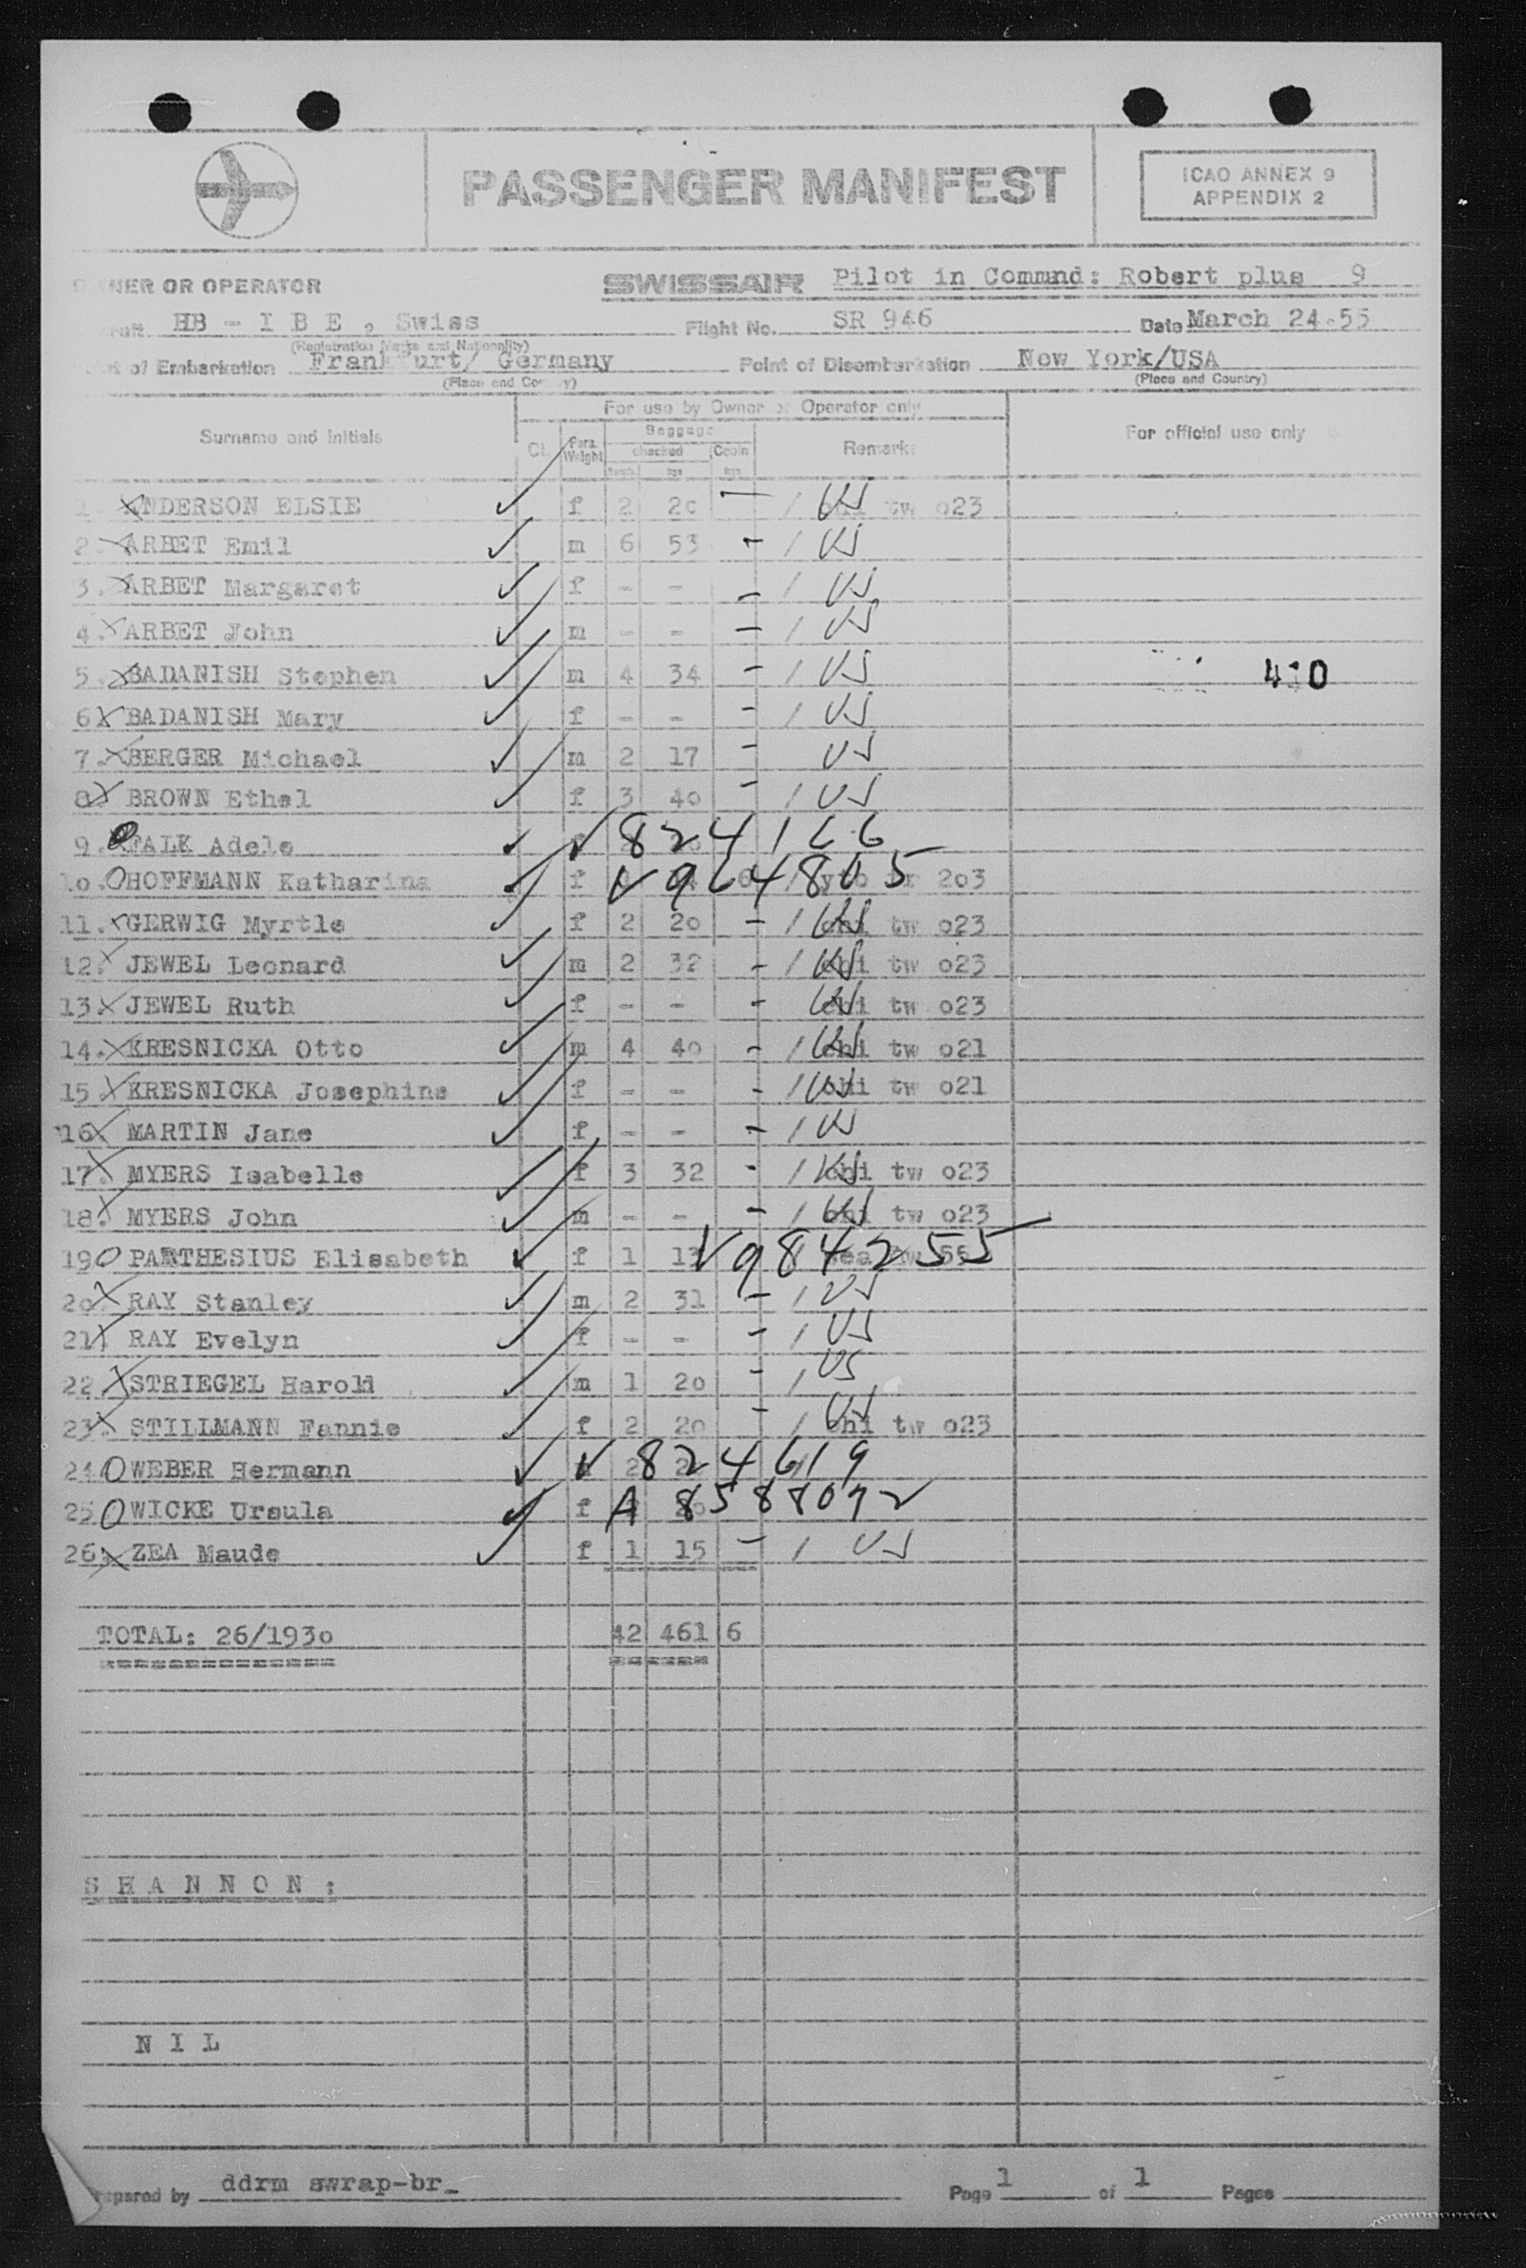 PASSENGER MANIFEST
ICAO ANNEX 9
APPENDIX 2
OWNER OR OPERATOR SWISSAIR Pilot in Commnd: Robert plus 9
HB - I B E , Swiss Flight No. SR 946 Date March 24.55
(Registration Marks and Nationality)
of Embarkation Frankfurt/ Germany Point of Disembarkation New York/USA
(Place and Country) (Place and Country)
For use by Owner or Operator only
Surname and Initials Cl. Pers. Weight Baggage checked Cabin Remarks For official use only
1. ANDERSON ELSIE f 2 20 - / US chi tw o23
2. ARBET Emil m 6 53 - / US
3. ARBET Margaret f - - - / US
4. ARBET John m - - - / US
5. BADANISH Stephen m 4 34 - / US 410
6. BADANISH Mary f - - - / US
7. BERGER Michael m 2 17 - US
8. BROWN Ethel f 3 40 - / US
9. FALK Adele f V 824166
10. HOFFMANN Katharina f V 964805 2o3
11. GERWIG Myrtle f 2 20 - / US chi tw o23
12. JEWEL Leonard m 2 32 - / US chi tw o23
13. JEWEL Ruth f - - - US chi tw o23
14. KRESNICKA Otto m 4 40 - / US chi tw o21
15. KRESNICKA Josephine f - - - / US chi tw o21
16. MARTIN Jane f - - - / US
17. MYERS Isabelle f 3 32 - / US chi tw o23
18. MYERS John m - - - / US chi tw o23
19. PARTHESIUS Elisabeth f 1 13 V 984255
20. RAY Stanley m 2 31 - / US
21. RAY Evelyn f - - - / US
22. STRIEGEL Harold m 1 20 - / US
23. STILLMANN Fannie f 2 20 - / US chi tw o23
24. WEBER Hermann 2 V 824619
25. WICKE Ursula f A 8588092
26. ZEA Maude f 1 15 - / US
TOTAL: 26/193o 42 461 6
S H A N N O N :
N I L
Prepared by ddrm swrap-br_ Page 1 of 1 Pages